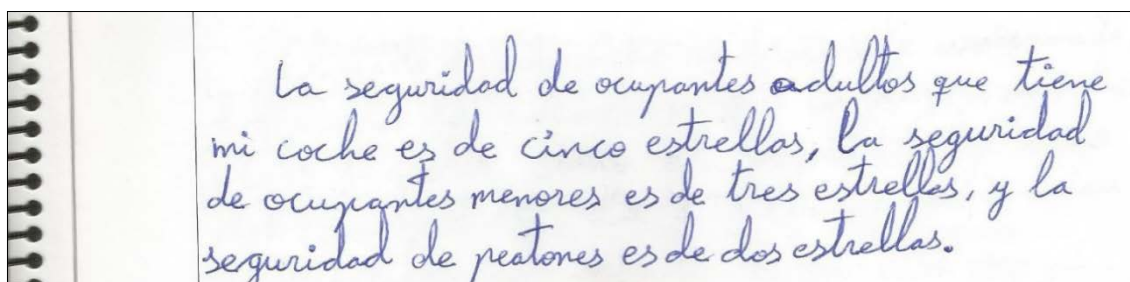 La seguridad de ocupantes adultos que tiene
mi coche es de cinco estrellas, la seguridad
de ocupantes menores es de tres estrellas, y la
seguridad de peatones es de dos estrellas.